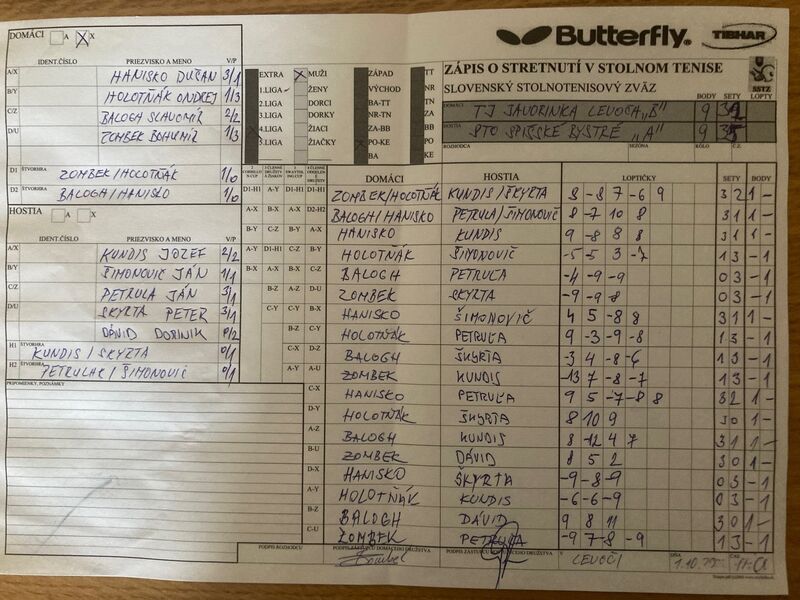 DOMÁCI A X
Butterfly. TIBHAR
IDENT.ČÍSLO PRIEZVISKO A MENO V/P
A/X HANISKO DUŠAN 3/1
B/Y HOLOTŇÁK ONDREJ 1/3
C/Z BALOGH SLAVOMÍR 2/2
D/U ZOMBEK BOHUMÍR 1/3
EXTRA MUŽI ZÁPAD TT
1.LIGA ŽENY VÝCHOD NR
2.LIGA DORCI BA-TT TN
3.LIGA DORKY NR-TN ZA
4.LIGA ŽIACI ZA-BB BB
5.LIGA ŽIAČKY PO-KE PO
BA KE
ZÁPIS O STRETNUTÍ V STOLNOM TENISE
SLOVENSKÝ STOLNOTENISOVÝ ZVÄZ
SSTZ
BODY SETY LOPTY
DOMÁCI TJ JAVORINKA LEVOČA „B" 9
HOSTIA STO SPIŠSKÉ BYSTRÉ „A" 9 35
ROZHODCA SEZÓNA KOLO Č.Z.
D1 ŠTVORHRA ZOMBEK/HOLOTŇÁK 1/0
D2 BALOGH/HANISKO 1/0
HOSTIA A X
IDENT.ČÍSLO PRIEZVISKO A MENO V/P
A/X KUNDIS JOZEF 2/2
B/Y ŠIMONOVIČ JÁN 1/1
C/Z PETRUĽA JÁN 3/1
D/U SKYRTA PETER 3/1
DÁVID DOMINIK 0/2
H1 ŠTVORHRA KUNDIS/SKYRTA 0/1
H2 ŠTVORHRA PETRUĽA/ŠIMONOVIČ 0/1
PRIPOMIENKY, POZNÁMKY
DOMÁCI HOSTIA LOPTIČKY SETY BODY
D1-H1 ZOMBEK/HOLOTŇÁK KUNDIS/ŠKYRTA 8 -8 7 -6 9 3 2 1 -
D2-H2 BALOGH/HANISKO PETRUĽA/ŠIMONOVIČ 8 -7 10 8 3 1 1 -
A-Y HANISKO KUNDIS 9 -8 8 8 3 1 1 -
B-Y HOLOTŇÁK ŠIMONOVIČ -5 5 3 -7 1 3 - 1
C-Z BALOGH PETRUĽA -4 -9 -9 0 3 - 1
D-U ZOMBEK SKYRTA -9 -9 8 0 3 - 1
B-X HANISKO ŠIMONOVIČ 4 5 -8 8 3 1 1 -
C-Y HOLOTŇÁK PETRUĽA 9 -3 -9 -8 1 3 - 1
D-Z BALOGH ŠKYRTA -3 4 -8 -6 1 3 - 1
A-U ZOMBEK KUNDIS -13 7 -8 -7 1 3 - 1
C-X HANISKO PETRUĽA 9 5 -7 -8 8 3 2 1 -
D-Y HOLOTŇÁK ŠKYRTA 8 10 9 3 0 1 -
A-Z BALOGH KUNDIS 8 -12 4 7 3 1 1 -
B-U ZOMBEK DÁVID 8 5 2 3 0 1 -
D-X HANISKO ŠKYRTA -9 -8 -9 0 3 - 1
A-Y HOLOTŇÁK KUNDIS -6 -6 -9 0 3 - 1
B-Z BALOGH DÁVID 9 8 11 3 0 1 -
C-U ZOMBEK PETRUĽA -9 7 -8 -9 1 3 - 1
PODPIS ROZHODCU PODPIS ZÁSTUPCU DOMÁCEHO DRUŽSTVA V LEVOČI DŇA 1.10. ČAS